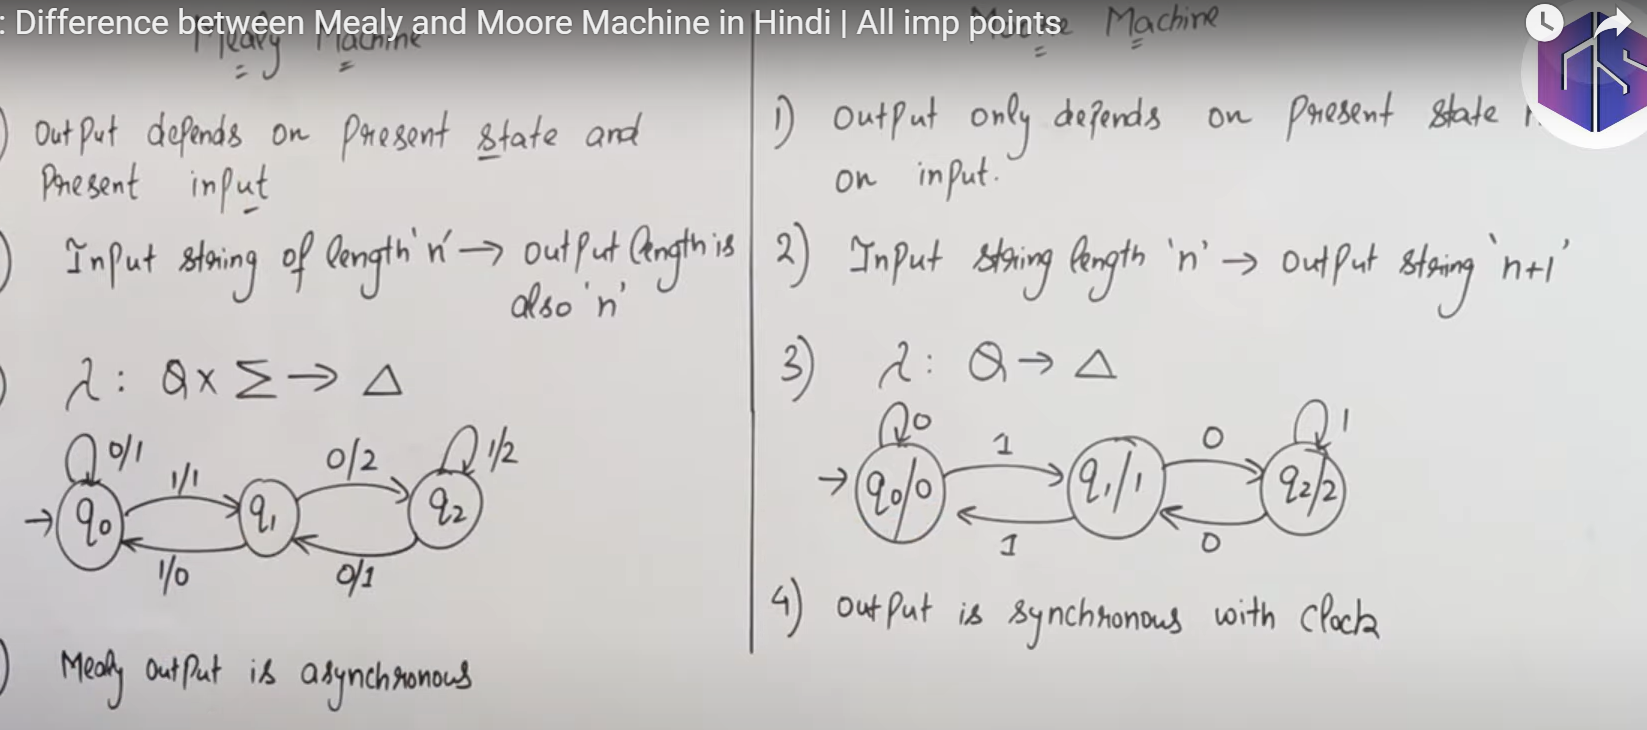 : Difference between Mealy and Moore Machine in Hindi | All imp points
Mealy Machine
) Output depends on Present state and
Present input
) Input string of length 'n' → output length is
also 'n'
) λ: Q x Σ → Δ
0/1
1/1
0/2
1/2
→ q0
q1
q2
1/0
0/1
) Mealy output is asynchronous
Moore Machine
1) output only depends on Present state
on input.
2) Input string length 'n' → output string 'n+1'
3) λ: Q → Δ
0
1
0
1
→ q0/0
q1/1
q2/2
1
0
4) output is synchronous with clock